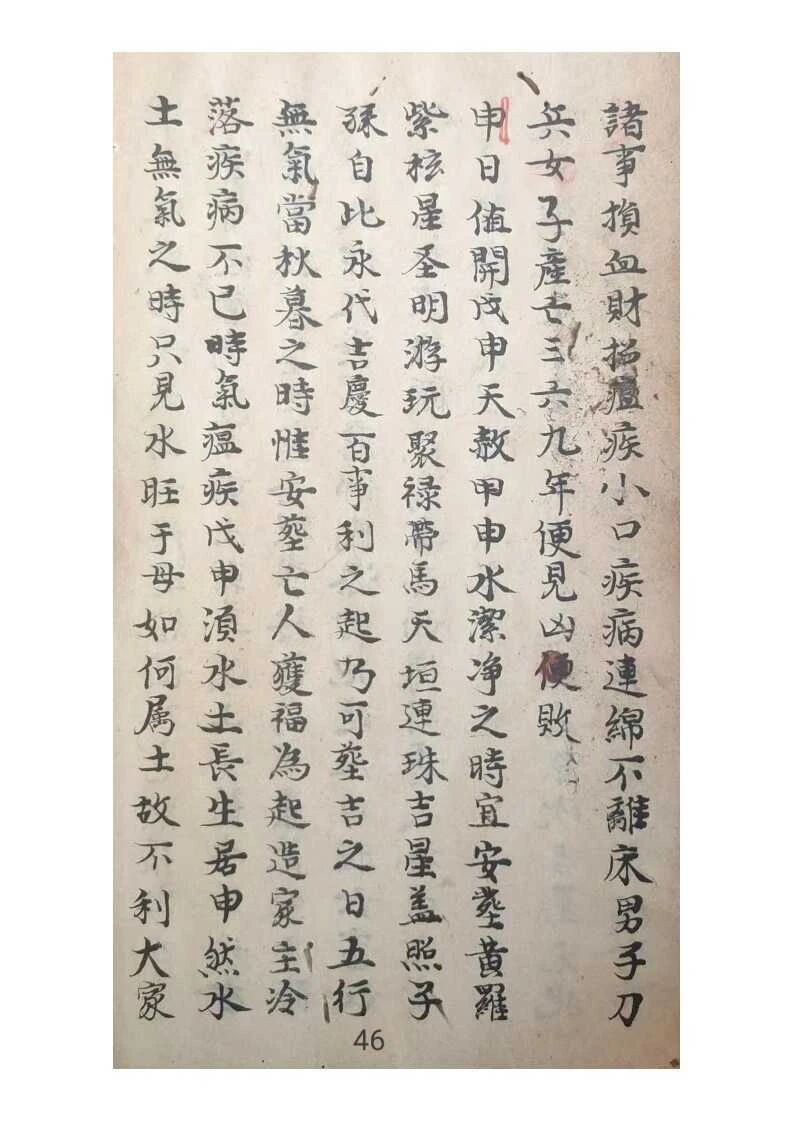 諸事損血財招瘟疾小口疾病連綿不離床男子刀
兵女子產亡三六九年便見凶便敗
申日值開戊申天赦甲申水潔净之時宜安塟黄羅
紫桉星圣明游玩聚禄帶馬天垣連珠吉星盖照子
孫自此永代吉慶百事利之起乃可塟吉之日五行
無氣當秋暮之時惟安塟亡人獲福為起造家主冷
落疾病不已時氣瘟疾戊申湏水土長生居申然水
土無氣之時只見水旺于母如何属土故不利大家
46